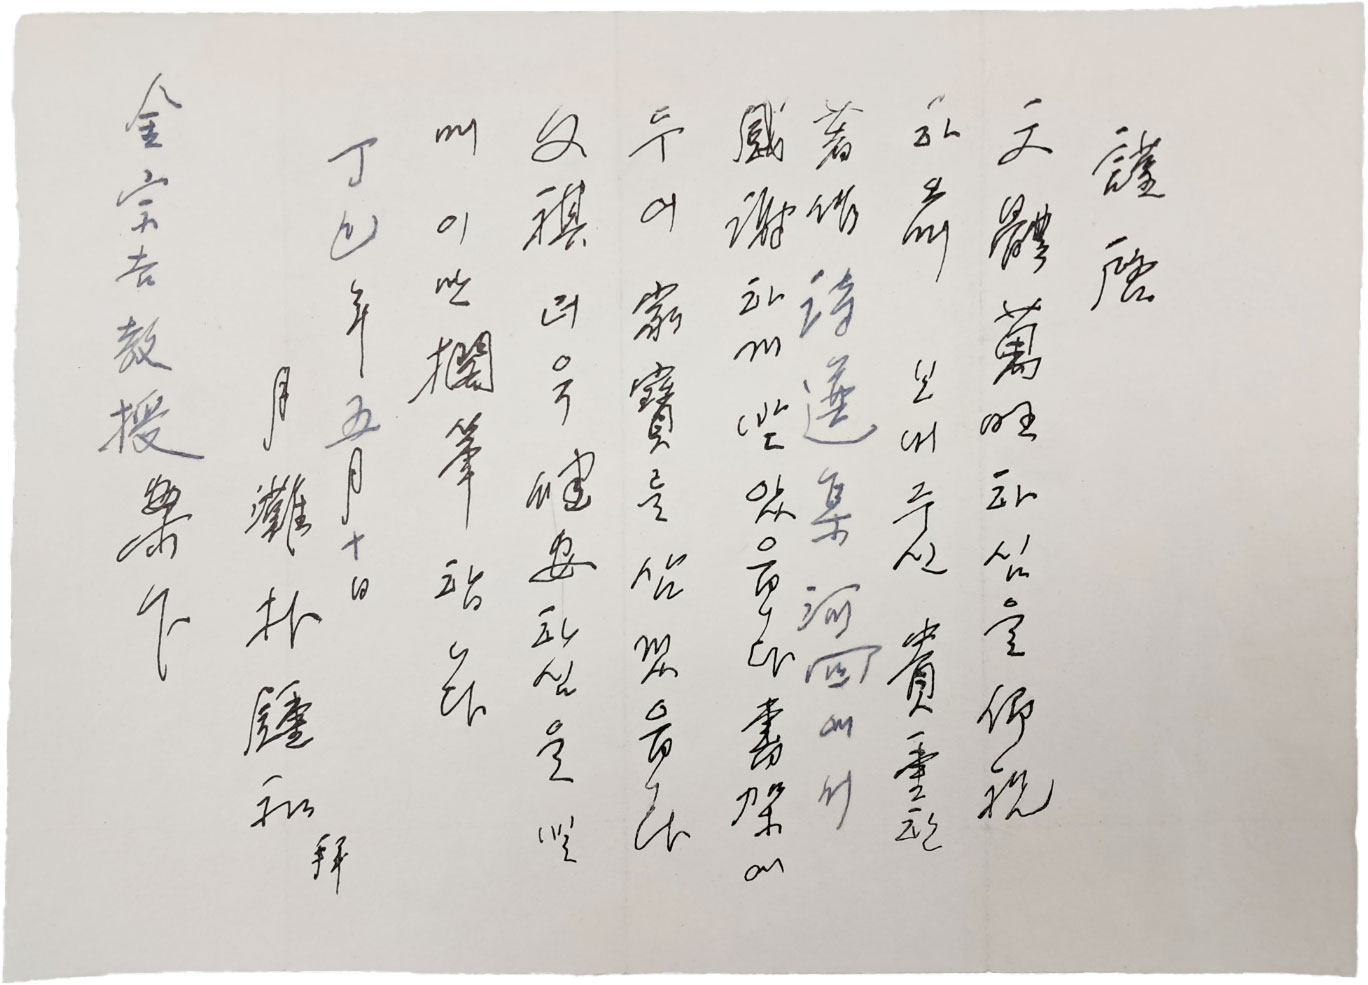 謹啓
文體萬旺하심을 仰祝
하오며 보내주신 貴重한
著作 詩選集 河回에서
感謝하게 받았읍니다 書架에
두어 家寶를 삼겠읍니다
文祺 더욱 健安하심을 빌
며 이만 擱筆합니다
丁巳年 五月 十日
月灘 朴鍾和
拜
金宗吉 敎授 案下